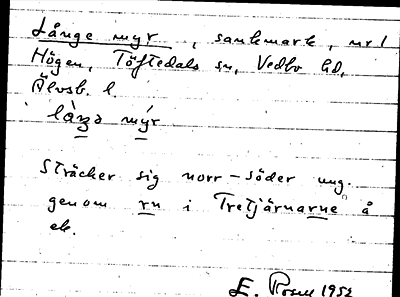 Långe myr, sankmark, nr 1
Högen, Töftedals sn, Vedbo hd,
Älvsb. l.
Sträcker sig norr-söder ung.
genom rn i Tretjärnarne å
ek.
E. Rosell 1952